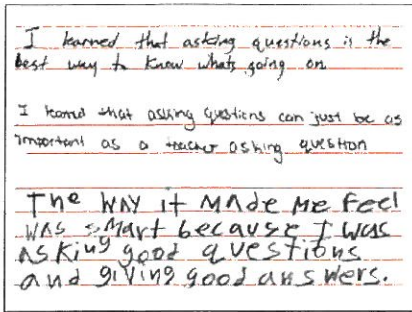 I learned that asking questions is the
best way to know whats going on
I learnd that asking questions can just be as
important as a teacher asking question
The way it made me feel
was smart because I was
asking good questions
and giving good answers.